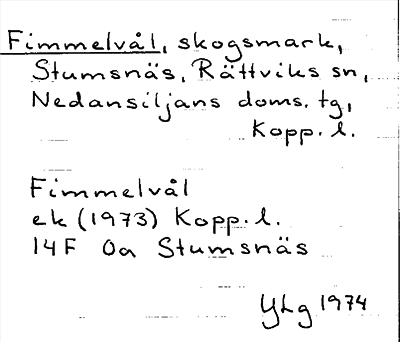 Fimmelvål, skogsmark,
Stumsnäs, Rättviks sn,
Nedansiljans doms. tg,
Kopp. l.
Fimmelvål
ek (1973) Kopp. l.
14F 0a Stumsnäs
YLg 1974